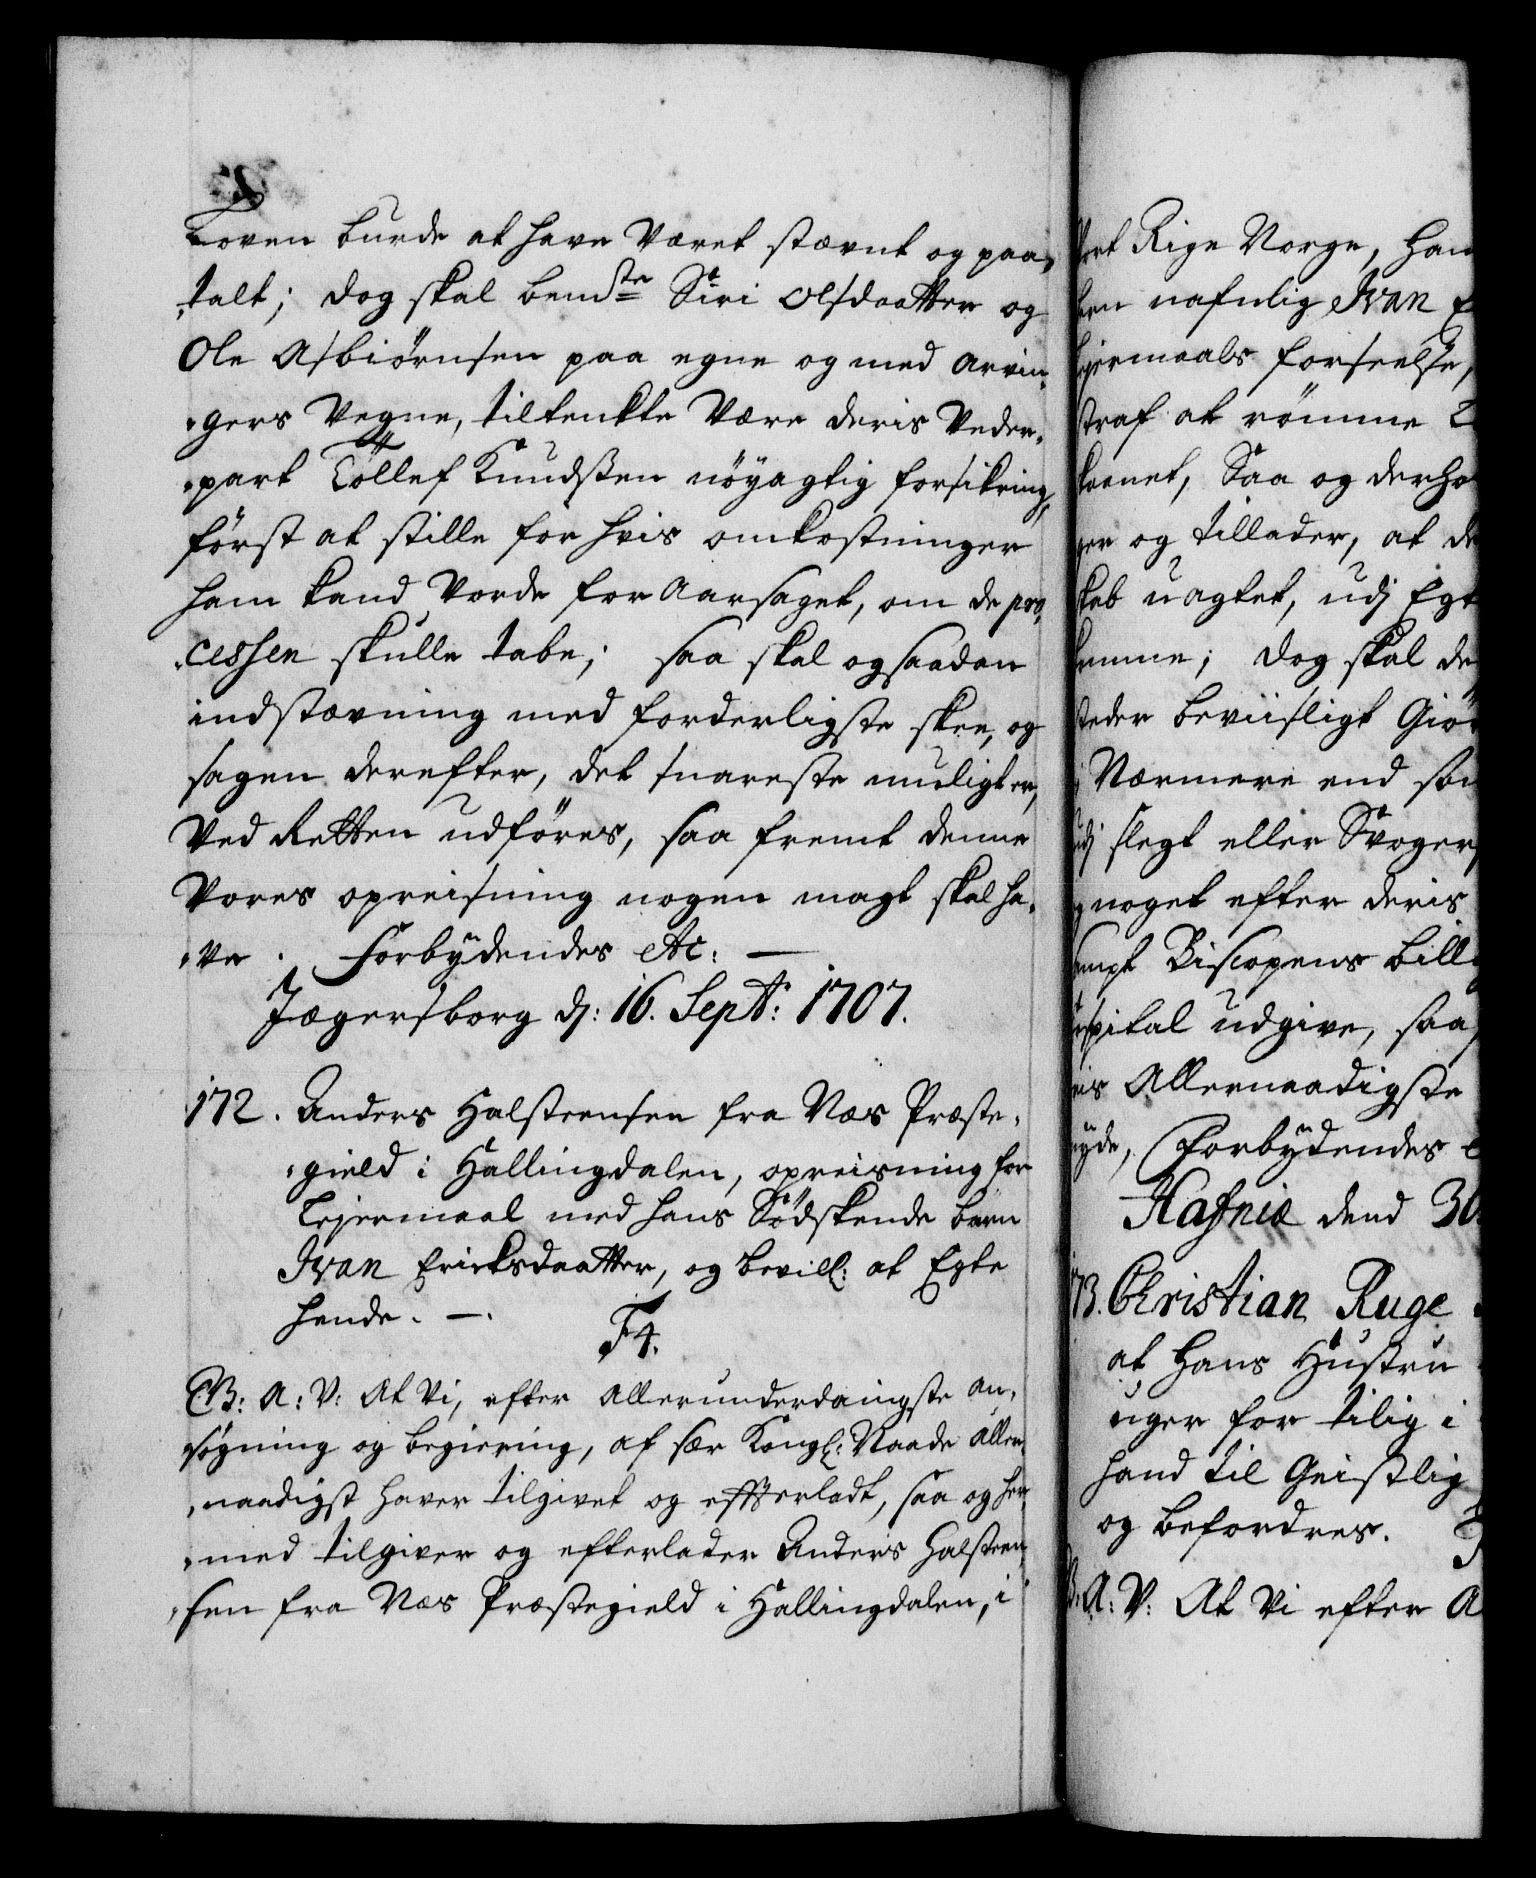 Loven burde at have været stævnt og paa„
„talt; dog skal bemte Siri Olsdaatter og
Ole Asbiörnsen paa egne og med arvin„
„gers Vegne, tiltenkte være deris Veder„
„part Töllef Knudssen nöyagtig forsikring,
först at stille for hvis omkostninger
ham kand vorde foraarsaget, om de pro„
„cessen skulle tabe; saa skal og saadan
indstævning med forderligste skee, og
sagen derefter, det snareste muligt er,
ved Retten udföres, saa fremt denne
Vores opreisning nogen magt skal ha„
„ve. Forbydendes etc: —
Jægersborg d: 16. Sept: 1707.
172. Anders Halsteensen fra Næs Præste„
„gield i Hallingdalen, opreisning for
Lejermaal med hans Södskende barn
Ivan Ericksdaatter, og bevill: at Egte
hende. —.
F4.
G: A: V: At Vi, efter allerunderdanigste an„
söygning og begiering, af sær Kongl: Naade aller„
„naadigst haver tilgivet og efterladt, saa og her„
„med tilgiver og efterlader Anders Halsteen„
„sen fra Næs Præstegield i Hallingdalen, i
Vort Rige Norge, han
barn nafnlig Ivan E
Lejermaals forseelse,
straf at römme
og tillader, at de
uagtet, udj Egt
komme; dog skal de
steder beviisligt Giör
Nærmere end som
udj slegt eller Svoger
noget efter deris
Biscopens bill
Hospital udgive, saa
Allernaadigste
nyde, Forbydendes e
Hafniæ dend 30
173. Christian Ruge
at Hans Hustru
unger for tilig i
hand til Geistlig
og befordres.
B: A: V: At Vi efter A